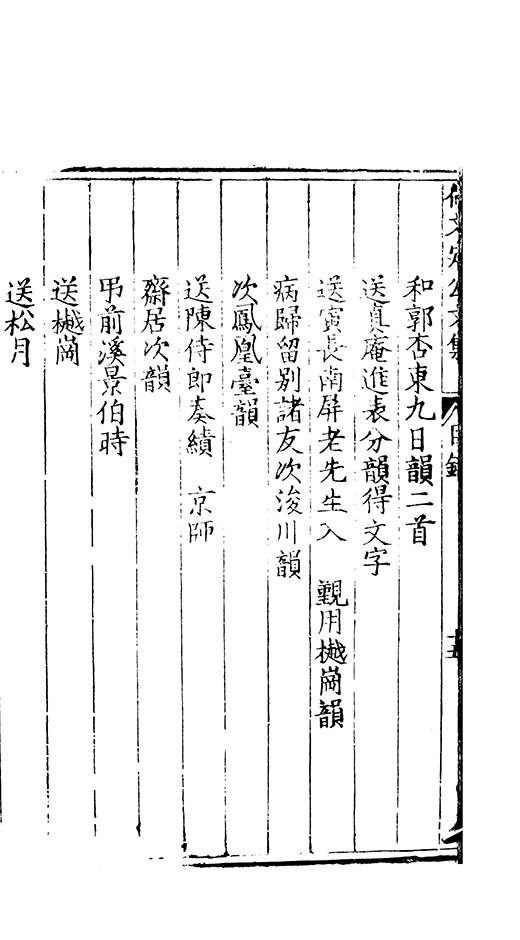 和郭杏東九日韻二首
送真庵進表分韻得文字
送寅長南屏老先生入　覲用樾崗韻
病歸留别諸友次浚川韻
次鳳凰臺韻
送陳侍郎奏績　京師
齋居次韻
弔前溪景伯時
送樾崗
送松月